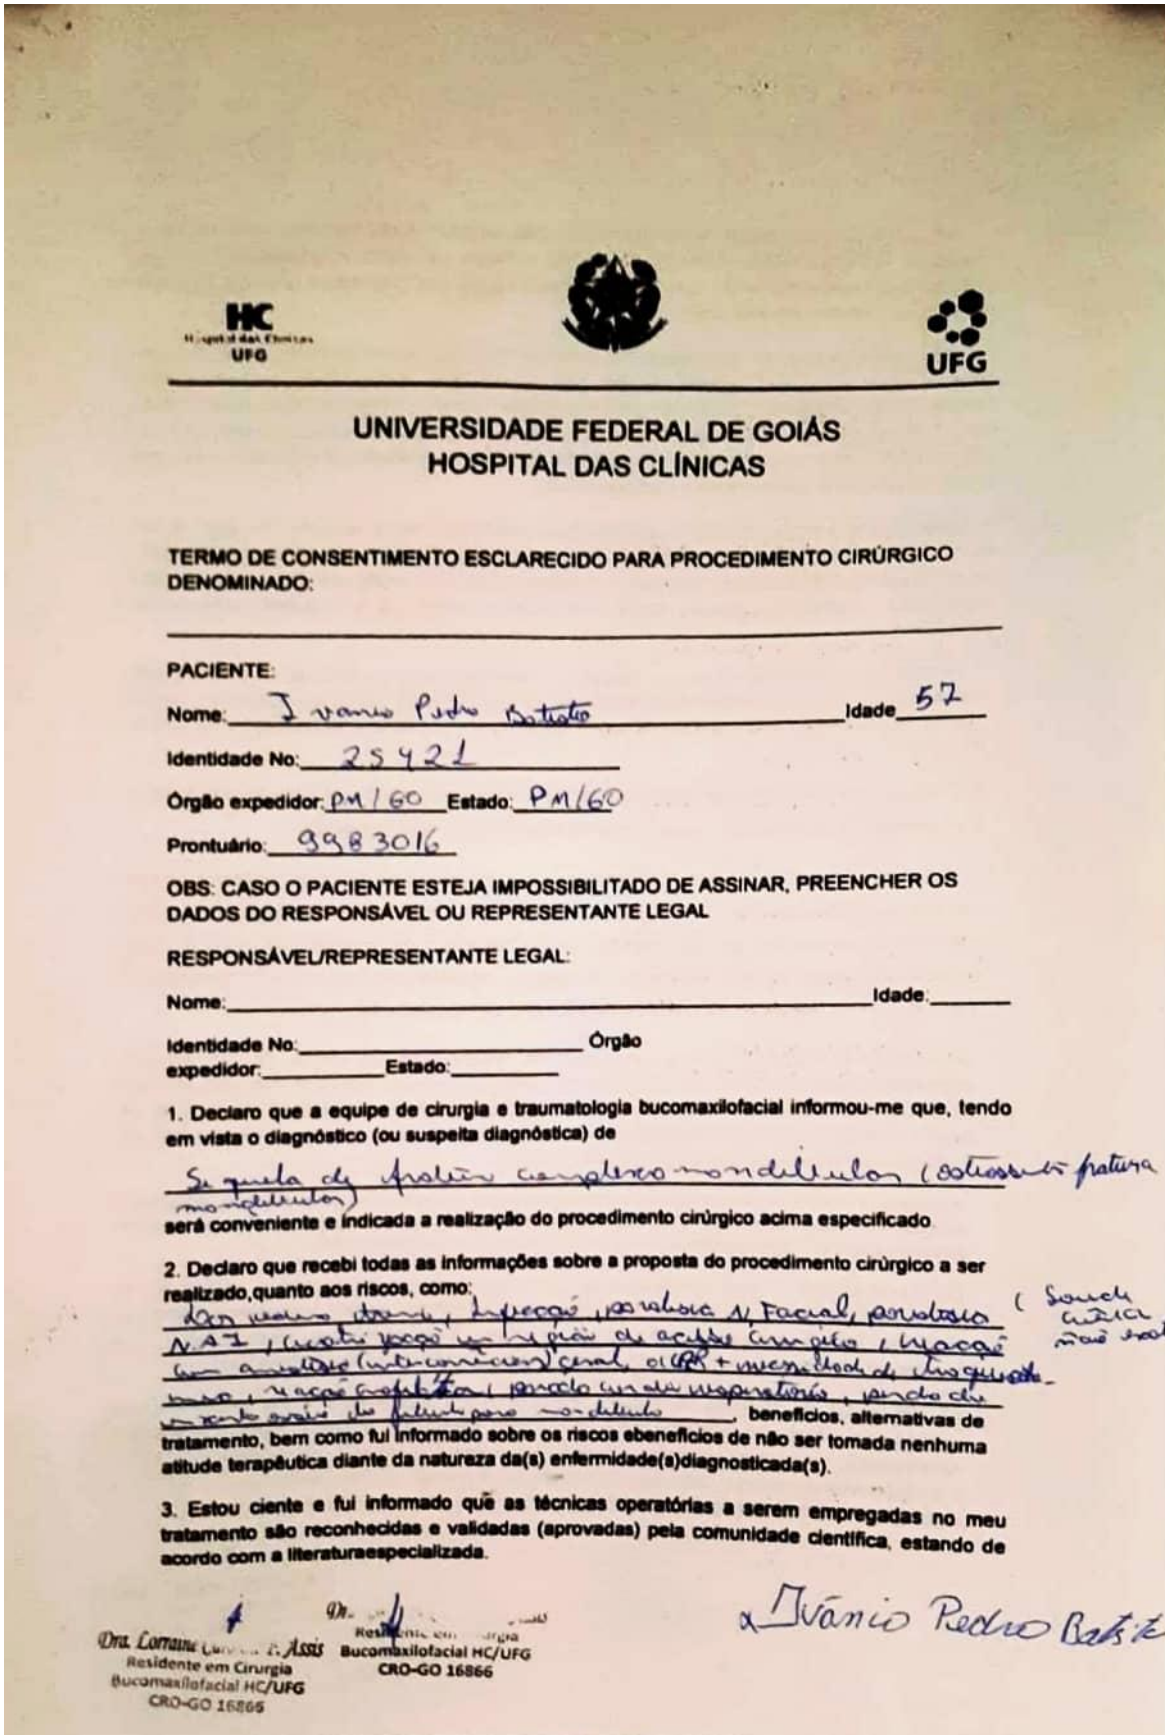 HC
Hospital das Clínicas
UFG
UFG
UNIVERSIDADE FEDERAL DE GOIÁS
HOSPITAL DAS CLÍNICAS
TERMO DE CONSENTIMENTO ESCLARECIDO PARA PROCEDIMENTO CIRÚRGICO
DENOMINADO:
PACIENTE:
Nome: Ivanio Pedro Batista Idade 57
Identidade No: 25421
Órgão expedidor: PM/GO Estado: PM/GO
Prontuário: 9983016
OBS: CASO O PACIENTE ESTEJA IMPOSSIBILITADO DE ASSINAR, PREENCHER OS
DADOS DO RESPONSÁVEL OU REPRESENTANTE LEGAL
RESPONSÁVEL/REPRESENTANTE LEGAL:
Nome: Idade:
Identidade No: Órgão
expedidor: Estado:
1. Declaro que a equipe de cirurgia e traumatologia bucomaxilofacial informou-me que, tendo
em vista o diagnóstico (ou suspeita diagnóstica) de
Sequela de mandibular ( fratura
mandibular)
será conveniente e indicada a realização do procedimento cirúrgico acima especificado
2. Declaro que recebi todas as informações sobre a proposta do procedimento cirúrgico a ser
realizado,quanto aos riscos, como:
infecção, paralisia N. Facial,
N.A.I, região de
geral, + necessidade de
, parada cardiorrespiratória, perda de
mandibula, benefícios, alternativas de
tratamento, bem como fui informado sobre os riscos ebenefícios de não ser tomada nenhuma
atitude terapêutica diante da natureza da(s) enfermidade(s)diagnosticada(s).
3. Estou ciente e fui informado que as técnicas operatórias a serem empregadas no meu
tratamento são reconhecidas e validadas (aprovadas) pela comunidade científica, estando de
acordo com a literaturaespecializada.
Ivânio Pedro Batista
Dra. Lorraine Assis
Residente em Cirurgia
Bucomaxilofacial HC/UFG
CRO-GO 16866
Dr.
Residente em Cirurgia
Bucomaxilofacial HC/UFG
CRO-GO 16866